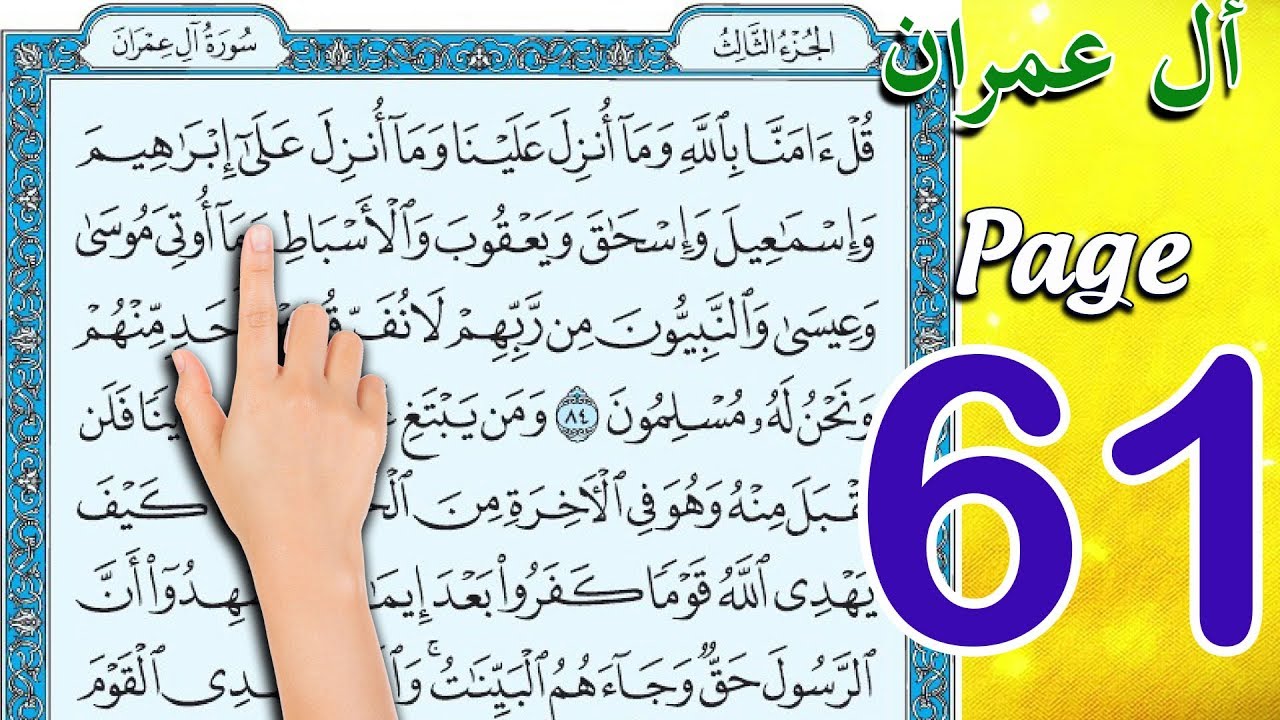 سُورَةُ آلِ عِمْرَانَ
الجُزْءُ الثَّالِثُ
أل عمران
Page
61
قُلْ ءَامَنَّا بِٱللَّهِ وَمَآ أُنزِلَ عَلَيْنَا وَمَآ أُنزِلَ عَلَىٰٓ إِبْرَٰهِيمَ
وَإِسْمَٰعِيلَ وَإِسْحَٰقَ وَيَعْقُوبَ وَٱلْأَسْبَاطِ وَمَآ أُوتِىَ مُوسَىٰ
وَعِيسَىٰ وَٱلنَّبِيُّونَ مِن رَّبِّهِمْ لَا مِّنْهُمْ
وَنَحْنُ لَهُۥ مُسْلِمُونَ ٨٤ وَمَن يَبْتَغِ فَلَن
مِنْهُ وَهُوَ فِى ٱلْأَخِرَةِ مِنَ كَيْفَ
يَهْدِى ٱللَّهُ قَوْمًا كَفَرُوا۟ بَعْدَ أَنَّ
ٱلرَّسُولَ حَقٌّ وَجَآءَهُمُ ٱلْبَيِّنَٰتُ ۚ ٱلْقَوْمَ